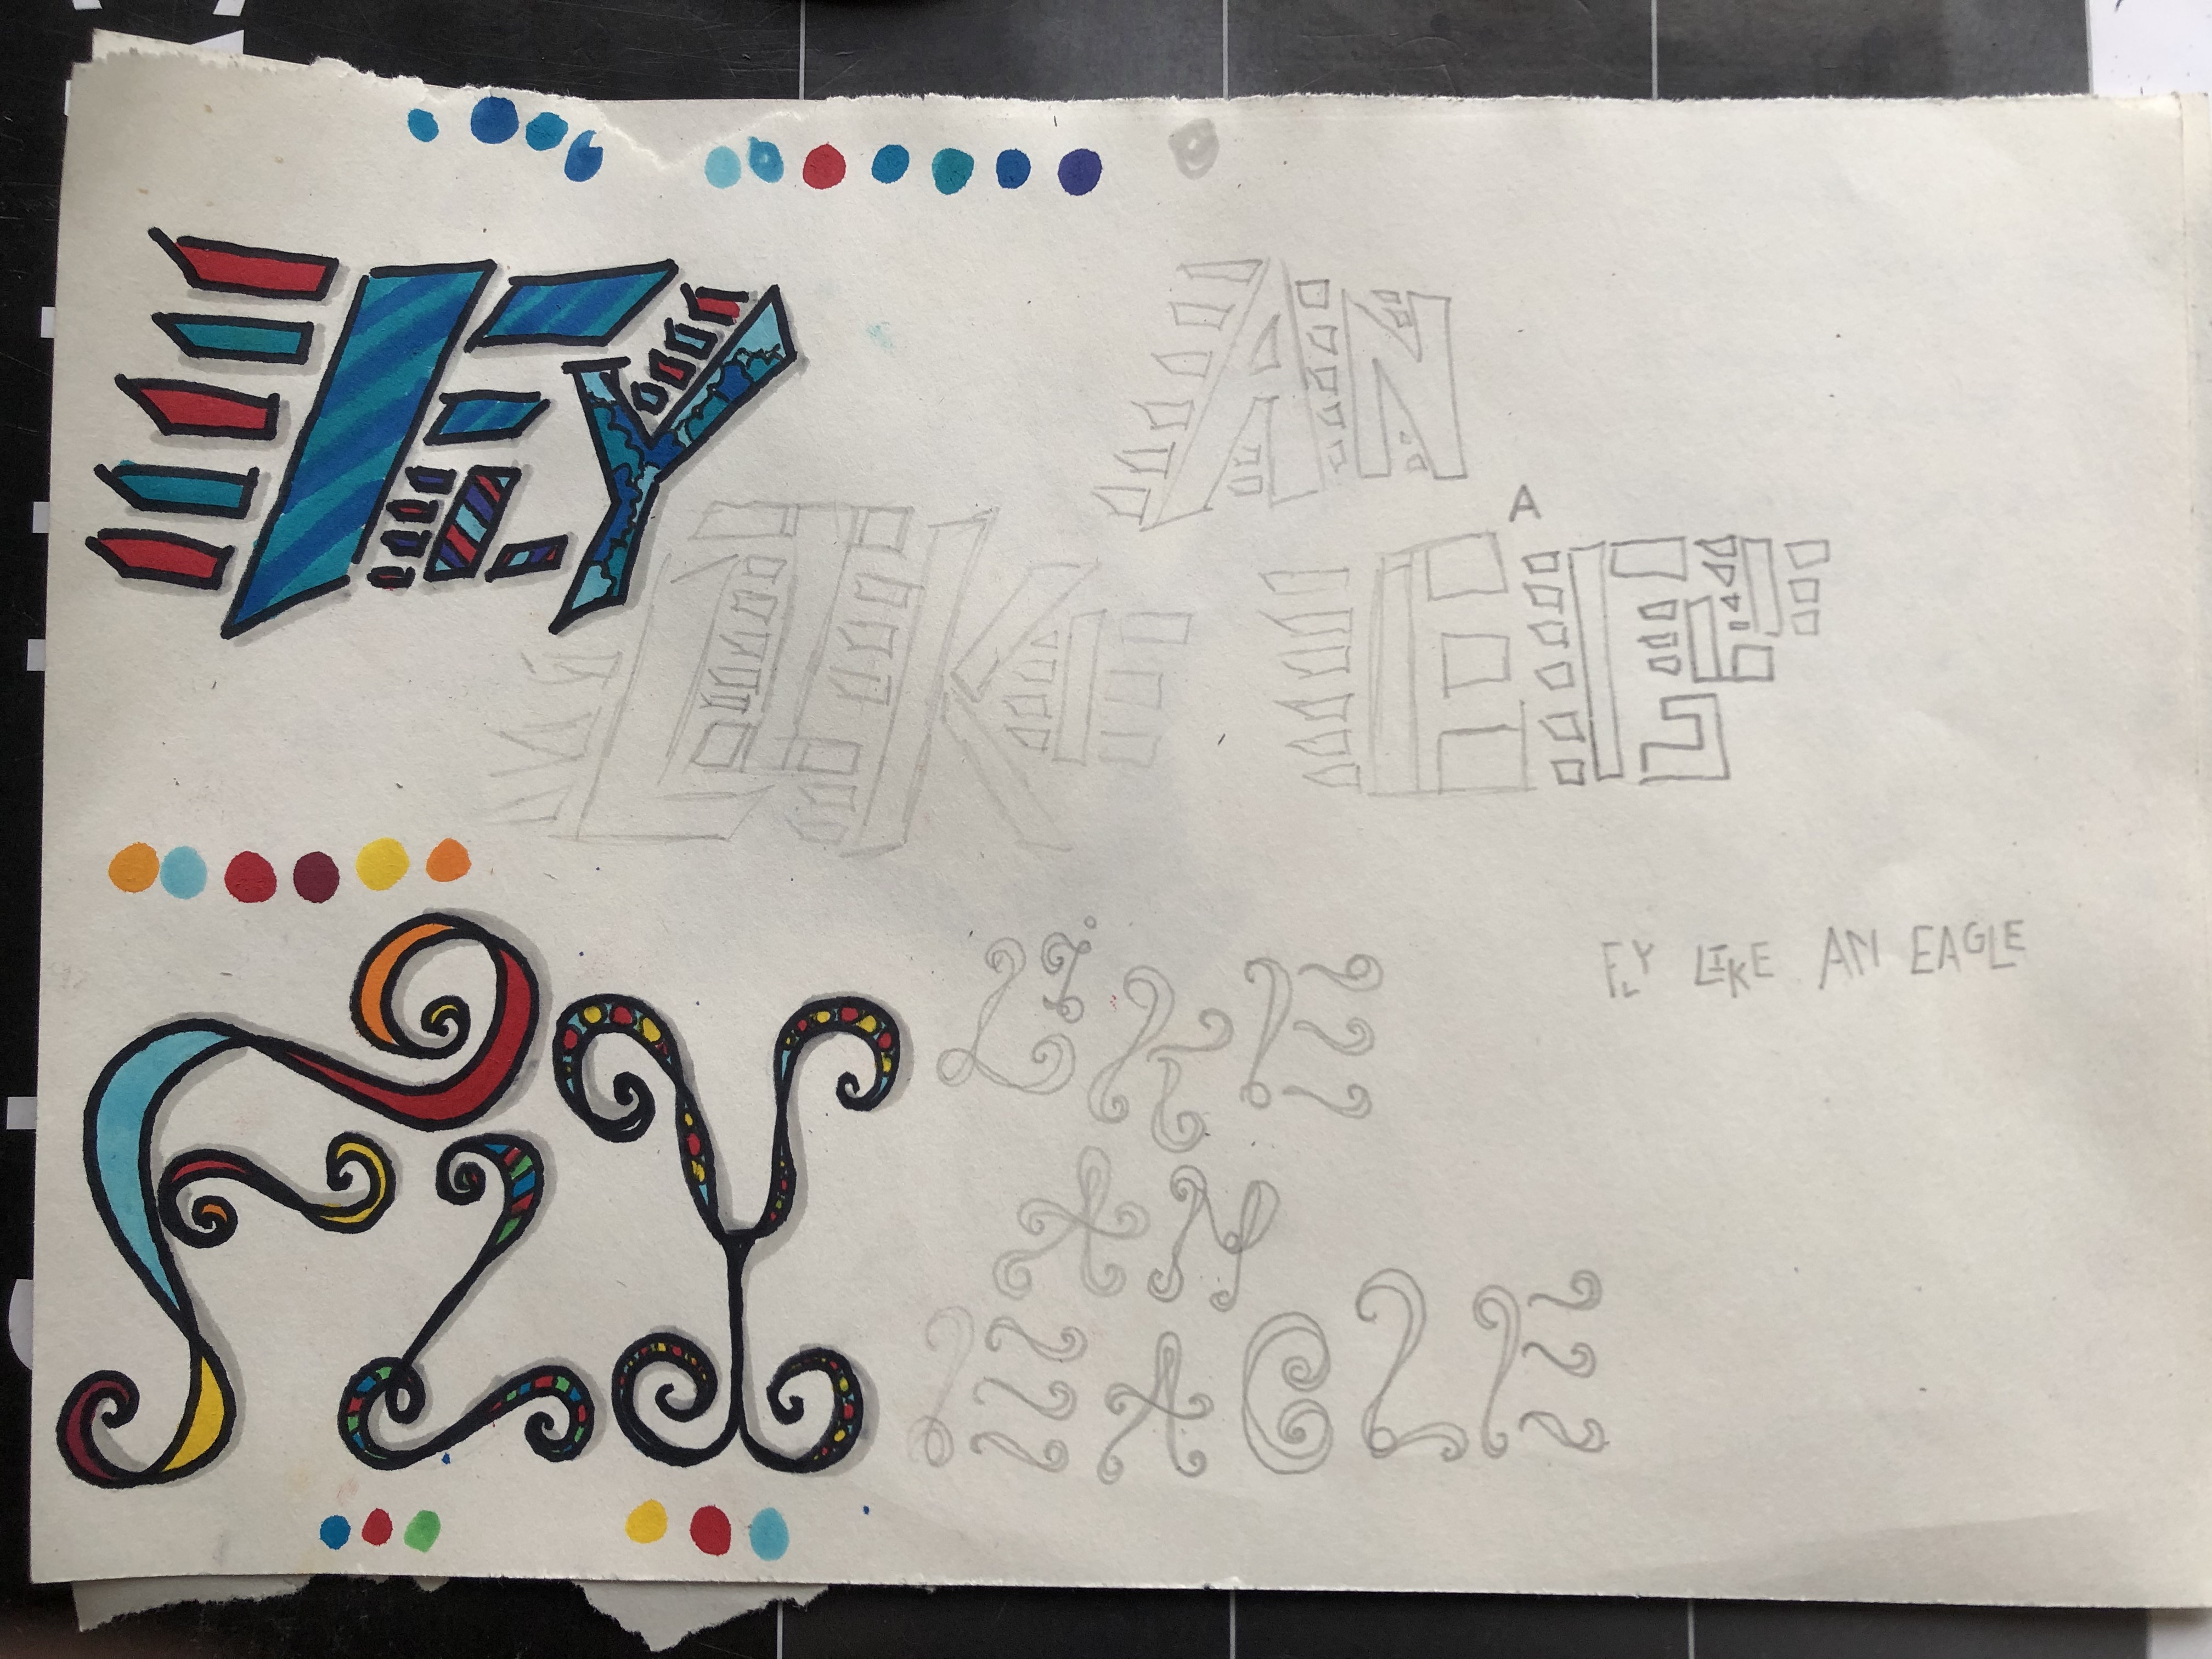 FLY
AN
LIKE
A
EAGLE
FLY LIKE AN EAGLE
FLY
LIKE
AN
EAGLE